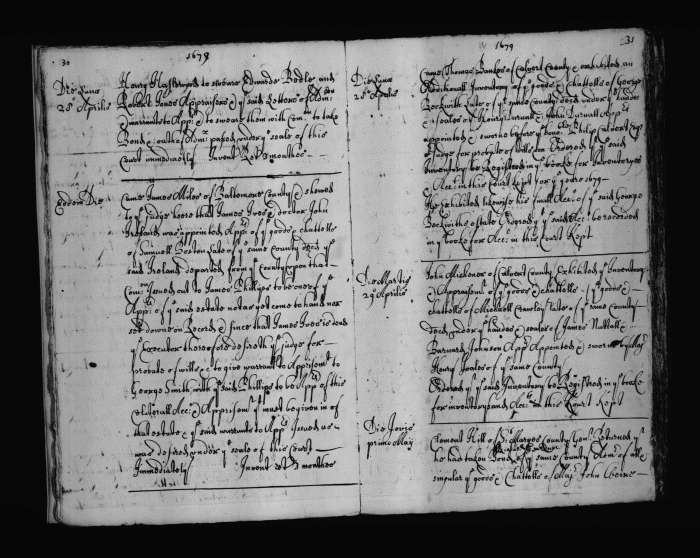 30
1679
Die Lune
28º Aprilis
Henry Hasle to sweare Edwarde Bodle and
Robert Jones Appraisers & yᵉ said Letters of Adm:
& warrants to App: & to sweare them with Com: to take
Bond & oath of Adm: passed under yᵉ seale of this
Court immediatly Invent Ret 3 monthes
Eodem Die
Came James Miles of Baltemore County & shewed
to yᵉ Judge heere that James Ives & Doctor John
Ireland was appointed App: of yᵉ goods & chattells
of Samuell Boston Late of yᵉ same County decd yᵉ
said Ireland departed from yᵉ County upon that
Com: Issued out to James Phillips to be one of yᵉ
App: of yᵉ said estate not as yet come to hand nor
set downe on Record & since that James Ives is dead
yᵉ Executor therefore desireth yᵉ Judge for
probate of wills &c to give warrant to Apprisemᵗ to
George Smith with yᵉ said Phillips to be App: of this
Acc: & Apprisemᵗ yᵉ must be given in of
that estate & yᵉ said warrant to App: Issued as
was desired under yᵉ seale of this Court
Immediatly Invent Ret 3 monthes
1679
31
Die Lune
28º Aprilis
Came Thomas Banks of Calvert County & exhibited an
Additionall Inventory of yᵉ goods & chattells of George
Beckwith Late of yᵉ same County decd under yᵉ hands
& seales of Henry & John Darnall App:
appointed & sworne before yᵉ hono: Philip Calvert Esq
Judge for probate of wills &c Ordered yᵉ said
Inventory be Registred in yᵉ booke for Inventoryes
& Acc: in this Court kept for yᵉ yeare 1679
He exhibited likewise his finall Acc: of yᵉ said George
Beckwiths estate Ordered yᵉ said Acc: be recorded
in yᵉ booke for Acc: in this Court kept
Die Martis
29 Aprilis
John of Calvert County Exhibited yᵉ Inventory
& Apprisemᵗ of yᵉ goods & chattells yᵉ goods &
chattells of Michaell Late of yᵉ same County
decd under yᵉ hands & seales of James Nuthall &
Barnard Johnson App: Appointed & sworne by
Henry of yᵉ same County
Ordered yᵗ yᵉ said Inventory be Registred in yᵉ booke
for Inventory and Acc: in this Court kept
Die Jovis
primo May
Clement Hill of Sᵗ Maryes County Genᵗ Returned yᵗ
he had taken Bond of yᵉ same County Adm: of all &
singular yᵉ goods & Chattells of Maj: John